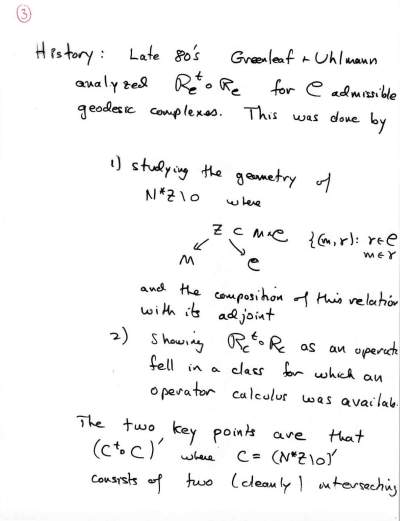 3
History: Late 80's Greenleaf + Uhlmann
analyzed R_C^t ∘ R_C for C admissible
geodesic complexes. This was done by
1) studying the geometry of
N*Z\0 where
Z ⊂ M×C {(m,γ): γ∈C
m∈γ
M C
and the composition of this relation
with its adjoint
2) Showing R_C^t ∘ R_C as an operat
fell in a class for which an
operator calculus was availab
The two key points are that
(C^t ∘ C)' where C = (N*Z\0)'
consists of two (cleanly) intersecting